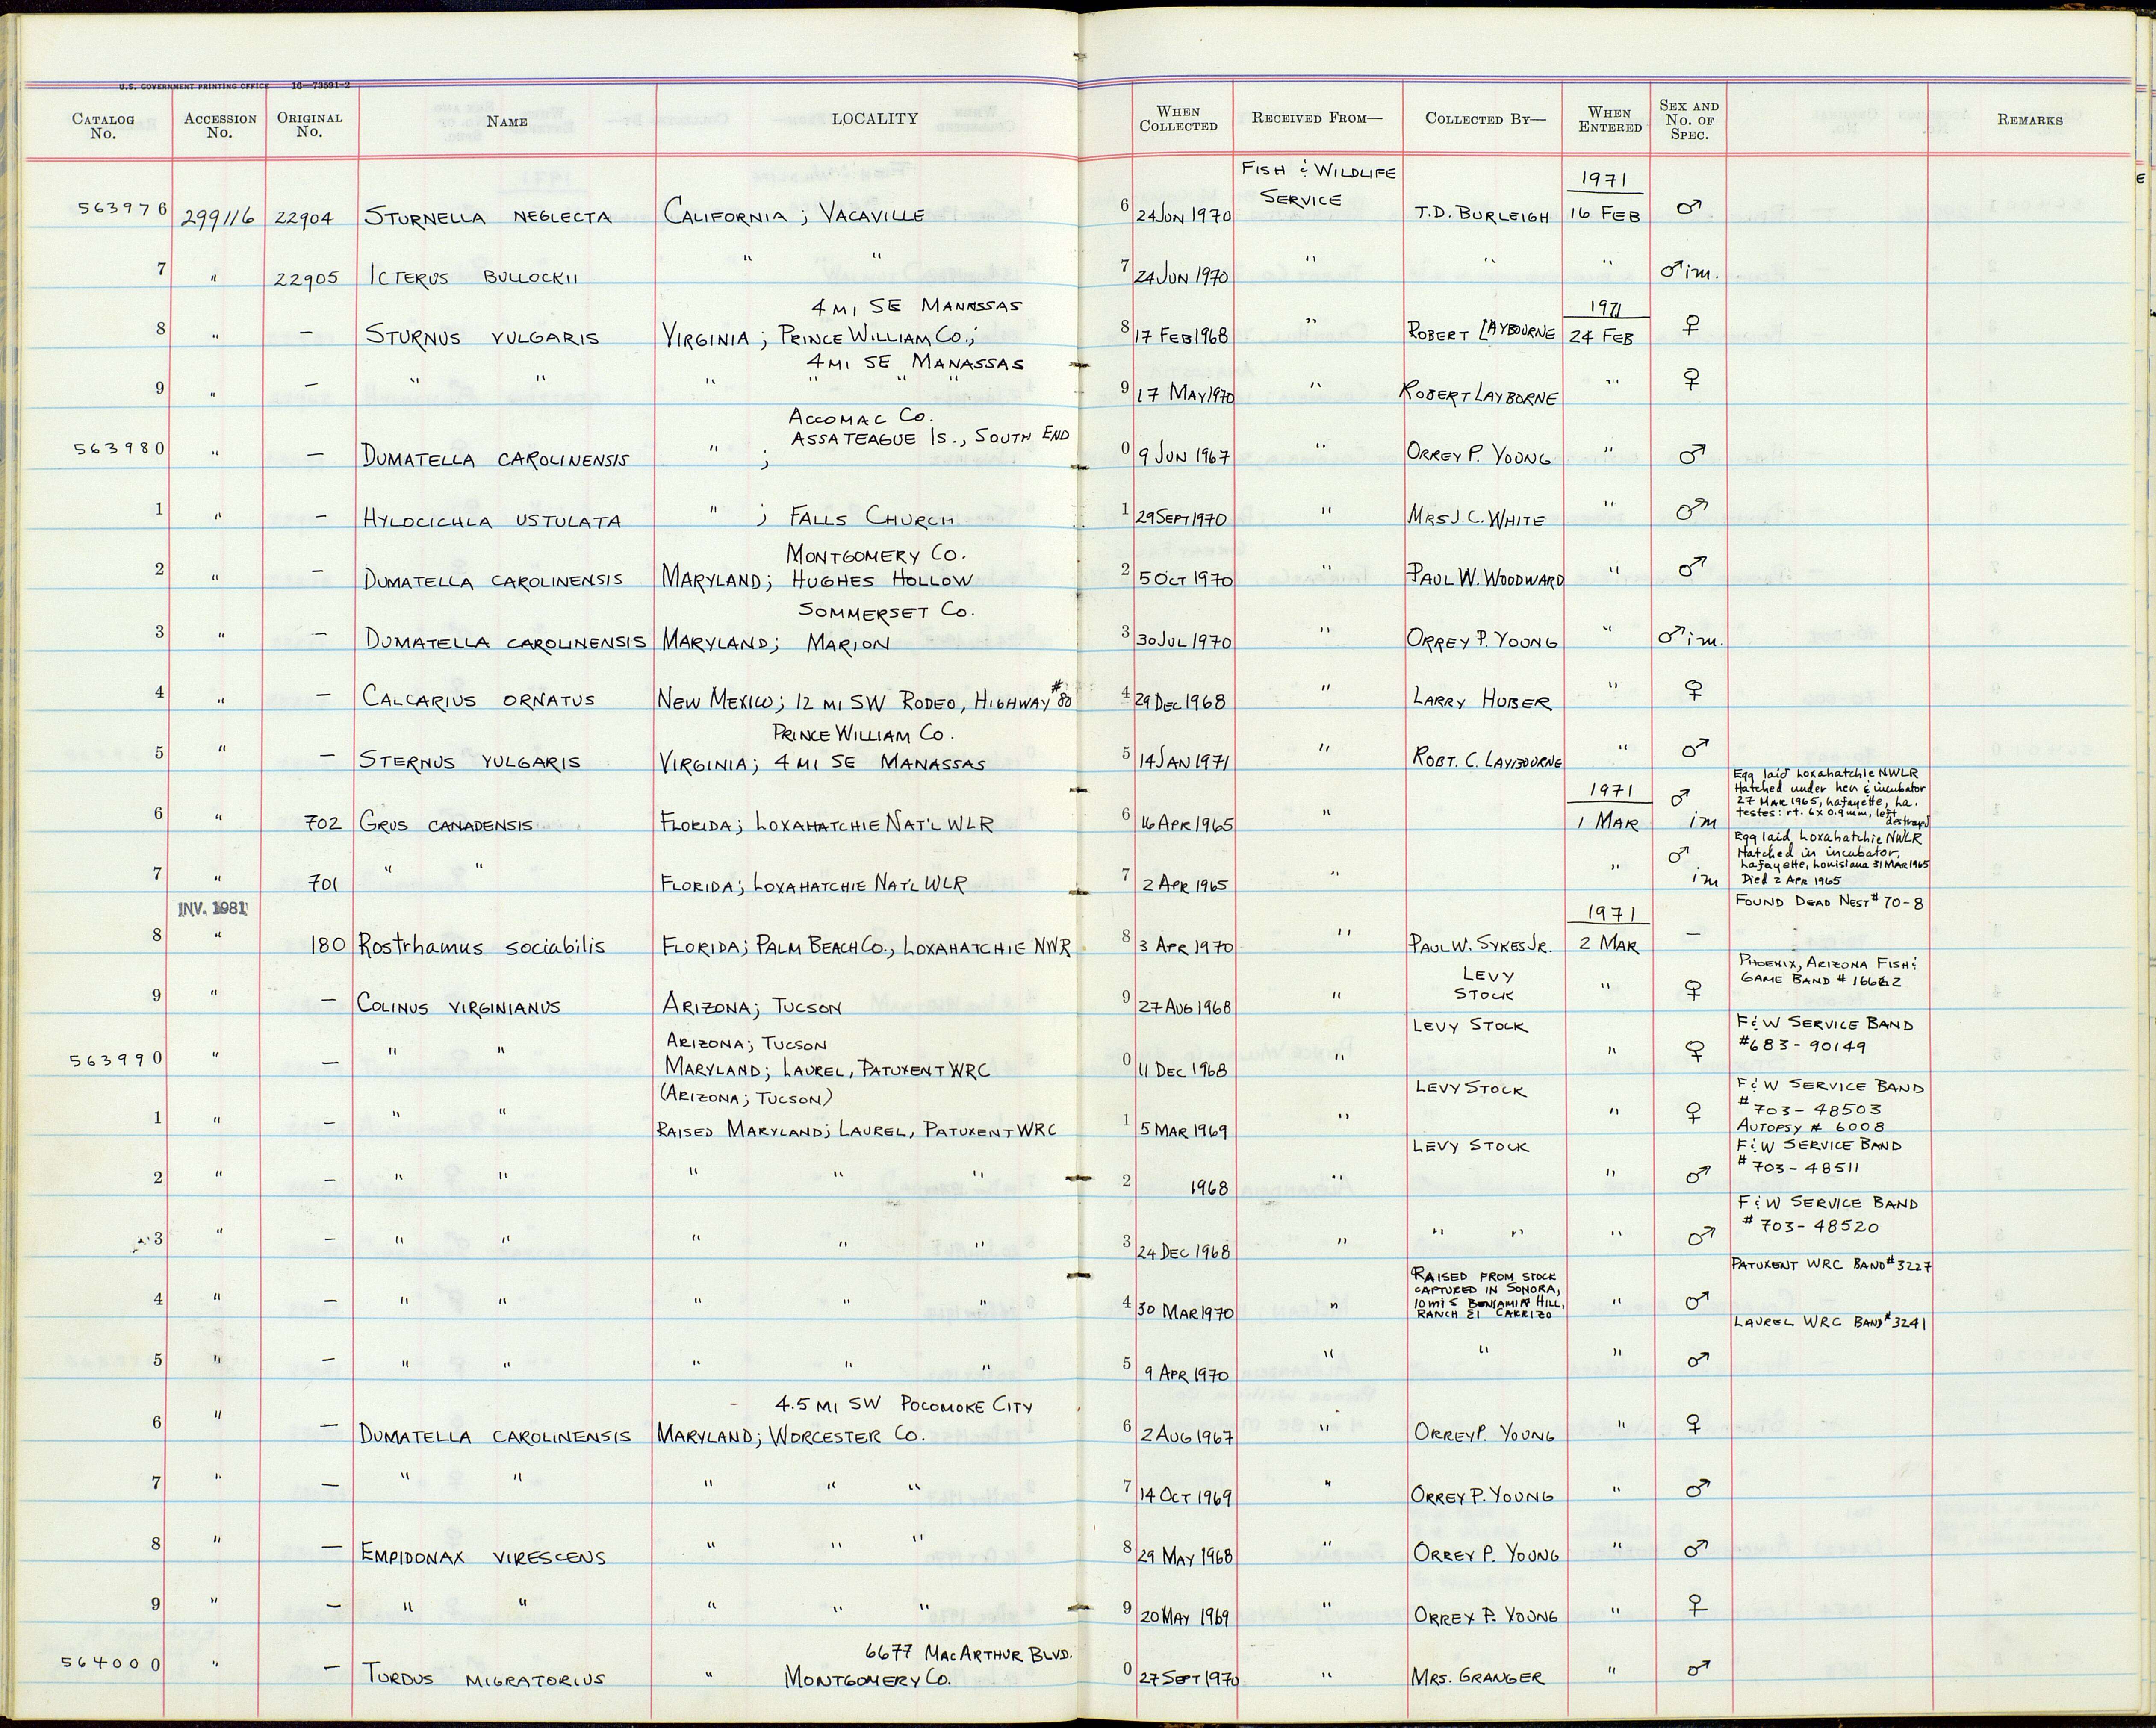 U.S. GOVERNMENT PRINTING OFFICE 16—73591-2
CATALOG No. ACCESSION No. ORIGINAL No. NAME LOCALITY WHEN COLLECTED RECEIVED FROM— COLLECTED BY— WHEN ENTERED SEX AND No. OF SPEC. REMARKS
FISH & WILDLIFE 1971
SERVICE
563976 299116 22904 STURNELLA NEGLECTA CALIFORNIA; VACAVILLE 6 24 JUN 1970 T.D. BURLEIGH 16 FEB ♂
7 " 22905 ICTERUS BULLOCKII " " 7 24 JUN 1970 " " " ♂ im.
4 MI SE MANASSAS 1971
8 " — STURNUS VULGARIS VIRGINIA; PRINCE WILLIAM CO.; 8 17 FEB 1968 " ROBERT LAYBOURNE 24 FEB ♀
4 MI SE MANASSAS
9 " — " " " " " " 9 17 MAY 1970 " ROBERT LAYBORNE " ♀
ACCOMAC CO.
ASSATEAGUE IS., SOUTH END
563980 " — DUMATELLA CAROLINENSIS " ; 0 9 JUN 1967 " ORREY P. YOUNG " ♂
1 " — HYLOCICHLA USTULATA " ; FALLS CHURCH 1 29 SEPT 1970 " MRS J.C. WHITE " ♂
MONTGOMERY CO.
2 " — DUMATELLA CAROLINENSIS MARYLAND; HUGHES HOLLOW 2 5 OCT 1970 " PAUL W. WOODWARD " ♂
SOMMERSET CO.
3 " — DUMATELLA CAROLINENSIS MARYLAND; MARION 3 30 JUL 1970 " ORREY P. YOUNG " ♂ im.
4 " — CALCARIUS ORNATUS NEW MEXICO; 12 MI SW RODEO, HIGHWAY #80 4 29 DEC 1968 " LARRY HUBER " ♀
PRINCE WILLIAM CO.
5 " — STERNUS VULGARIS VIRGINIA; 4 MI SE MANASSAS 5 14 JAN 1971 " ROBT. C. LAYBOURNE " ♂
Egg laid Loxahatchie NWLR
1971 Hatched under hen & incubator
27 MAR 1965, Lafayette, La.
6 " 702 GRUS CANADENSIS FLORIDA; LOXAHATCHIE NAT'L WLR 6 16 APR 1965 " 1 MAR ♂ im testes: rt. 6x0.9mm, left destroyed
Egg laid Loxahatchie NWLR
Hatched in incubator,
Lafayette, Louisiana 31 MAR 1965
7 " 701 " " FLORIDA; LOXAHATCHIE NAT'L WLR 7 2 APR 1965 " " ♂ im Died 2 APR 1965
INV. 1981 1971 FOUND DEAD NEST #70-8
8 " 180 Rostrhamus sociabilis FLORIDA; PALM BEACH CO., LOXAHATCHIE NWR 8 3 APR 1970 " PAUL W. SYKES JR. 2 MAR —
LEVY PHOENIX, ARIZONA FISH &
STOCK GAME BAND # 16662
9 " — COLINUS VIRGINIANUS ARIZONA; TUCSON 9 27 AUG 1968 " " ♀
LEVY STOCK F & W SERVICE BAND
ARIZONA; TUCSON #683-90149
563990 " — " " MARYLAND; LAUREL, PATUXENT WRC 0 11 DEC 1968 " " ♀
(ARIZONA; TUCSON) LEVY STOCK F & W SERVICE BAND
# 703-48503
1 " — " " RAISED MARYLAND; LAUREL, PATUXENT WRC 1 5 MAR 1969 " " ♀ AUTOPSY # 6008
LEVY STOCK F & W SERVICE BAND
2 " — " " " " " 2 1968 " " ♂ # 703-48511
F & W SERVICE BAND
3 " — " " " " " 3 24 DEC 1968 " " " " ♂ # 703-48520
PATUXENT WRC BAND #3227
RAISED FROM STOCK
CAPTURED IN SONORA,
10 mi S BENJAMIN HILL,
4 " — " " " " " 4 30 MAR 1970 " RANCH El CARRIZO " ♂
LAUREL WRC BAND #3241
5 " — " " " " " 5 9 APR 1970 " " " ♂
4.5 MI SW POCOMOKE CITY
6 " — DUMATELLA CAROLINENSIS MARYLAND; WORCESTER CO. 6 2 AUG 1967 " ORREY P. YOUNG " ♀
7 " — " " " " " 7 14 OCT 1969 " ORREY P. YOUNG " ♂
8 " — EMPIDONAX VIRESCENS " " " 8 29 MAY 1968 " ORREY P. YOUNG " ♂
9 " — " " " " " 9 20 MAY 1969 " ORREY P. YOUNG " ♀
6677 MACARTHUR BLVD.
564000 " — TURDUS MIGRATORIUS " MONTGOMERY CO. 0 27 SEPT 1970 " MRS. GRANGER " ♂